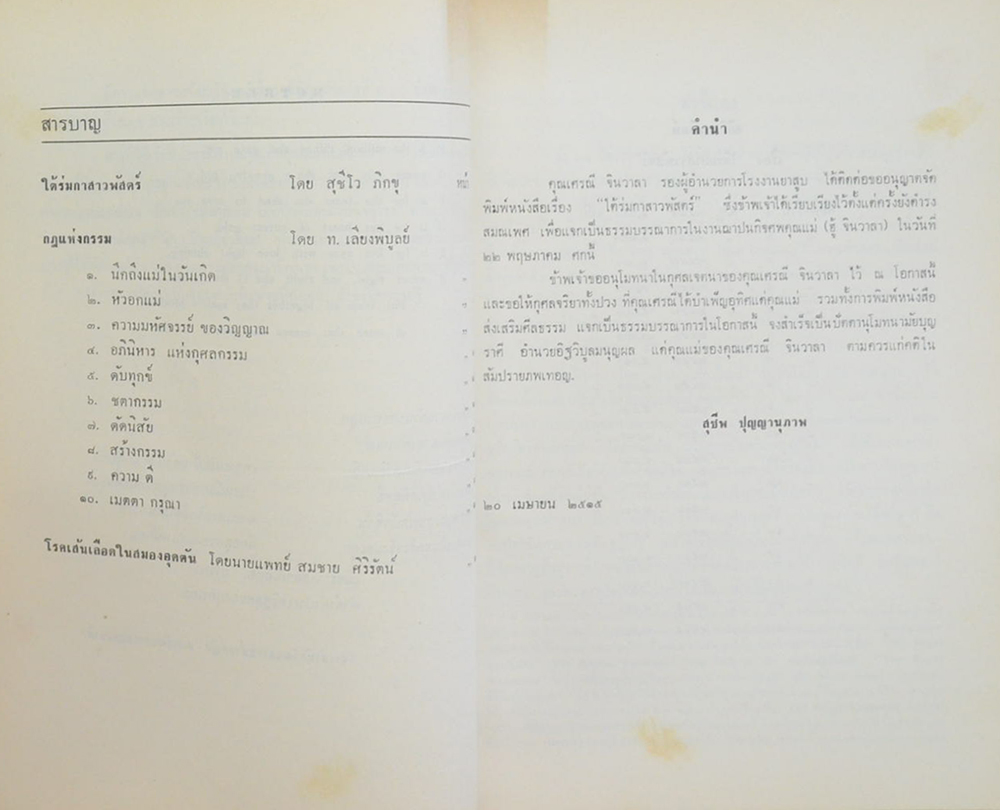 สารบาญ
ใต้ร่มกาสาวพัสตร์ โดย สุชีโว ภิกขุ
กฎแห่งกรรม โดย ท. เลียงพิบูลย์
๑. นึกถึงแม่ในวันเกิด
๒. หัวอกแม่
๓. ความมหัศจรรย์ ของวิญญาณ
๔. อภินิหาร แห่งกุศลกรรม
๕. ดับทุกข์
๖. ชตากรรม
๗. ดัดนิสัย
๘. สร้างกรรม
๙. ความ ดี
๑๐. เมตตา กรุณา
โรคเส้นเลือดในสมองอุดตัน โดยนายแพทย์ สมชาย ศิริรัตน์
คำนำ
คุณเศรณี จินวาลา รองผู้อำนวยการโรงงานยาสูบ ได้ติดต่อขออนุญาตจัด
พิมพ์หนังสือเรื่อง "ใต้ร่มกาสาวพัสตร์" ซึ่งข้าพเจ้าได้เรียบเรียงไว้ตั้งแต่ครั้งยังดำรง
สมณเพศ เพื่อแจกเป็นธรรมบรรณาการในงานฌาปนกิจศพคุณแม่ (ฮู้ จินวาลา) ในวันที่
๒๒ พฤษภาคม ศกนี้
ข้าพเจ้าขออนุโมทนาในกุศลเจตนาของคุณเศรณี จินวาลา ไว้ ณ โอกาสนี้
และขอให้กุศลจริยาทั้งปวง ที่คุณเศรณีได้บำเพ็ญอุทิศแด่คุณแม่ รวมทั้งการพิมพ์หนังสือ
ส่งเสริมศีลธรรม แจกเป็นธรรมบรรณาการในโอกาสนี้ จงสำเร็จเป็นปัตตานุโมทนามัยบุญ
ราศี อำนวยอิฐวิบูลมนุญผล แด่คุณแม่ของคุณเศรณี จินวาลา ตามควรแก่คติใน
สัมปรายภพเทอญ.
สุชีพ ปุญญานุภาพ
๒๐ เมษายน ๒๕๑๕